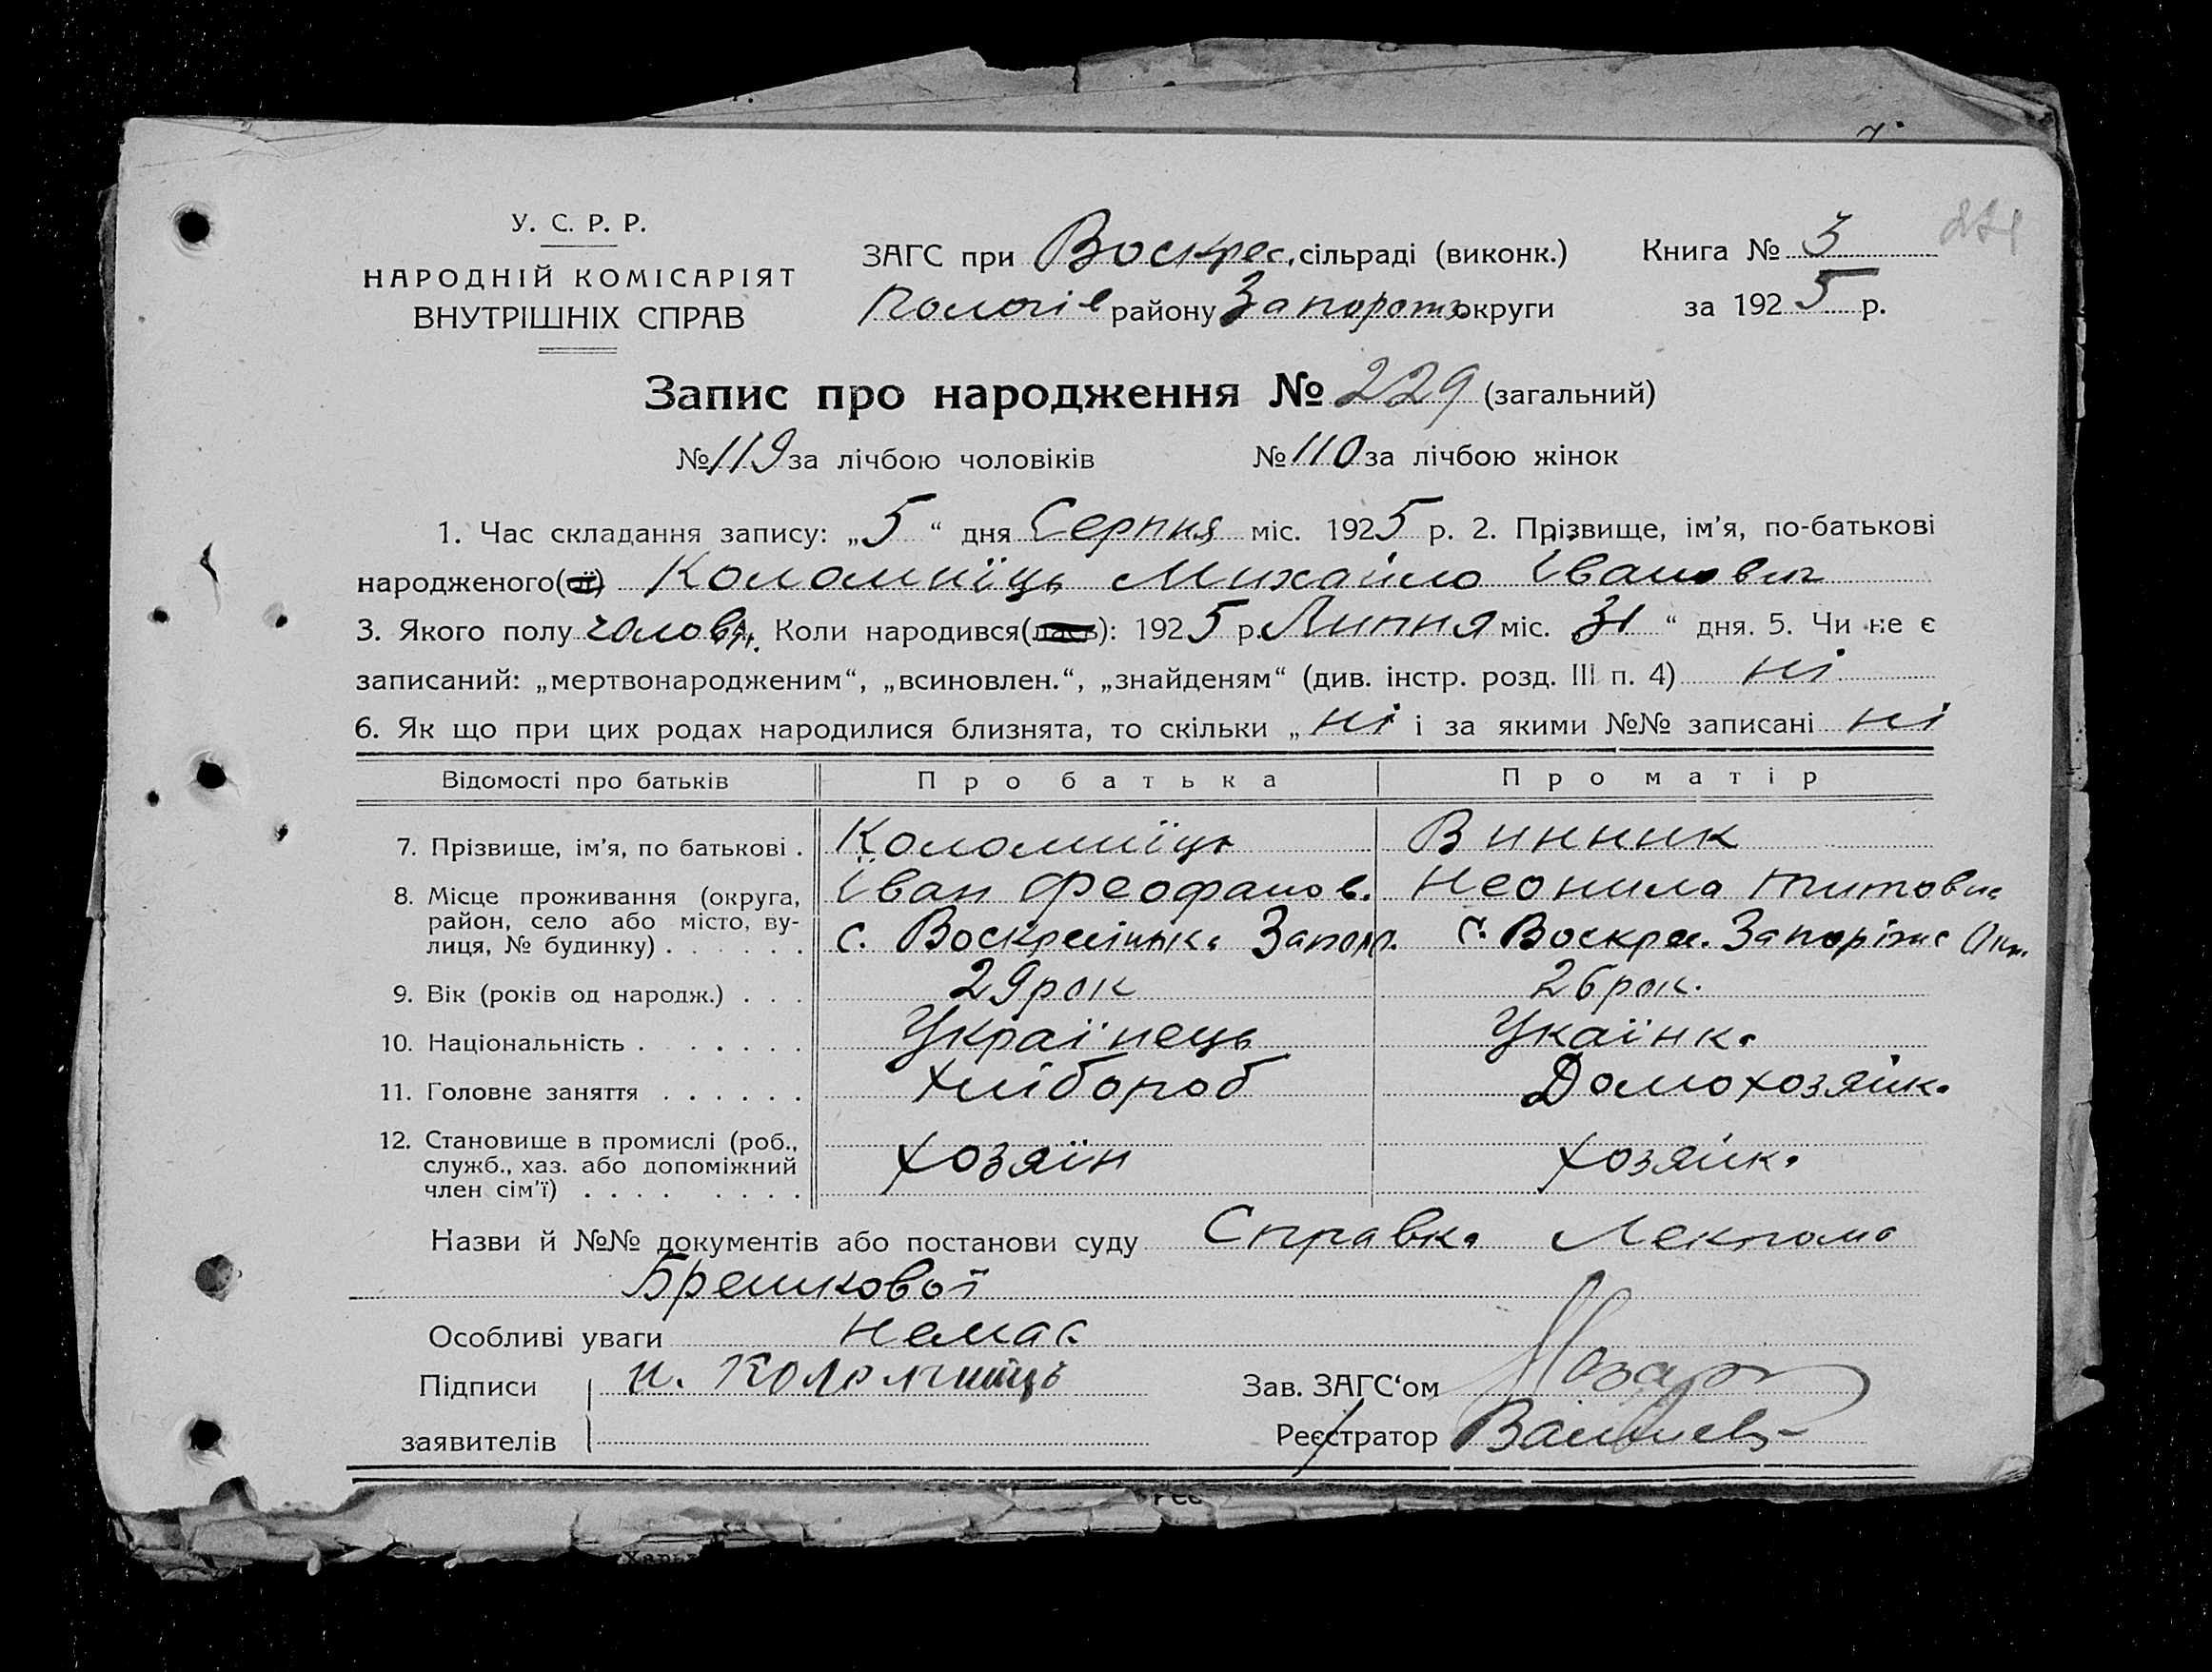 У. С. Р. Р.
НАРОДНІЙ КОМІСАРІЯТ
ВНУТРІШНІХ СПРАВ
ЗАГС при Воскрес. сільраді (виконк.) Книга № 3
Пологів району Запорож округи за 1925 р.
Запис про народження № 229 (загальний)
№ 119 за лічбою чоловіків № 110 за лічбою жінок
1. Час складання запису: „5“ дня Серпня міс. 1925 р. 2. Прізвище, ім’я, по-батькові
народженого(ої) Коломиїць Михайло Іванович
3. Якого полу чоловіч. Коли народився(лась): 1925 р. Липня міс. 31 “ дня. 5. Чи не є
записаний: „мертвонародженим“, „всиновлен.“, „знайденям“ (див. інстр. розд. III п. 4) ні
6. Як що при цих родах народилися близнята, то скільки „ ні і за якими №№ записані ні
Відомості про батьків Про батька Про матір
7. Прізвище, ім’я, по батькові . Коломиїць Винник
Іван Феофанов. Неонила Титовна
8. Місце проживання (округа, район, село або місто, вулиця, № будинку) с. Воскресінька Запор. с. Воскрес. Запоріжс Окр.
9. Вік (років од народж.) . . . 29 рок 26 рок.
10. Національність . Українець Укаїнка
11. Головне заняття Хлібороб Домохозяйка
12. Становище в промислі (роб., служб., хаз. або допоміжний член сім’ї) Хозяїн Хозяйка
Назви й №№ документів або постанови суду Справка Лекпома
Брешкової
Особливі уваги немає
Підписи И. Коломиїць Зав. ЗАГС‘ом
заявителів Реєстратор